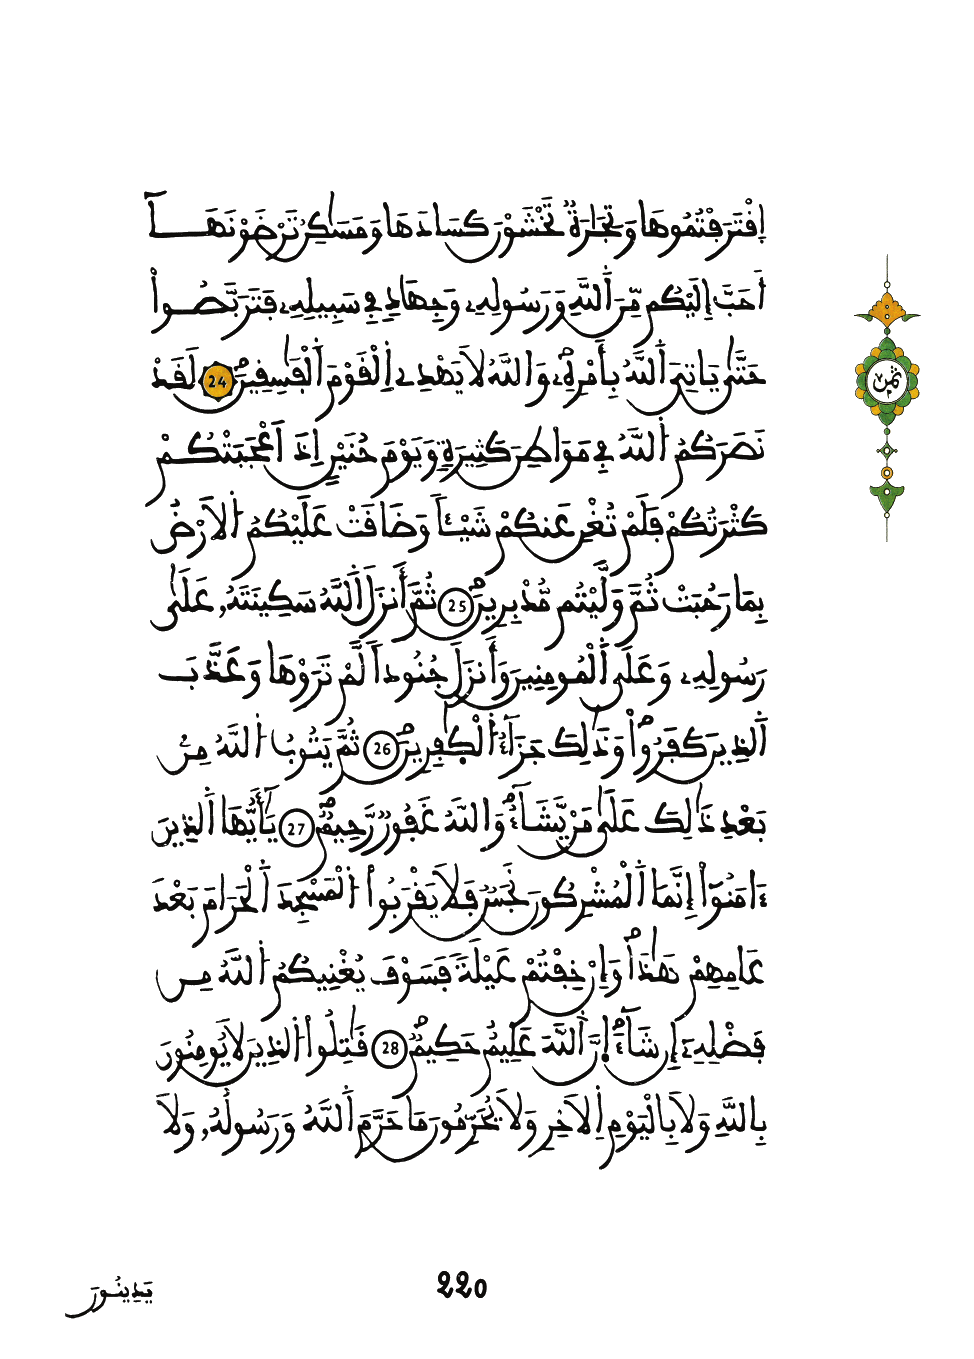 اِ۪قْتَرَفْتُمُوهَا وَتِجَٰرَةٞ تَخْشَوْنَ كَسَادَهَا وَمَسَٰكِنُ تَرْضَوْنَهَآ
أَحَبَّ إِلَيْكُم مِّنَ اَ۬للَّهِ وَرَسُولِهِۦ وَجِهَادٖ فِے سَبِيلِهِۦ فَتَرَبَّصُواْ
حَتَّىٰ يَاتِيَ اَ۬للَّهُ بِأَمْرِهِۦۖ وَاللَّهُ لَا يَهْدِے اِ۬لْقَوْمَ اَ۬لْفَٰسِقِينَۖ 24 لَقَدْ
نَصَرَكُمُ اُ۬للَّهُ فِے مَوَاطِنَ كَثِيرَةٖ وَيَوْمَ حُنَيْنٍ اِذَ اَعْجَبَتْكُمْ
كَثْرَتُكُمْ فَلَمْ تُغْنِ عَنكُمْ شَيْـٔاٗ وَضَاقَتْ عَلَيْكُمُ اُ۬لَارْضُ
بِمَا رَحُبَتْ ثُمَّ وَلَّيْتُم مُّدْبِرِينَۖ 25 ثُمَّ أَنزَلَ اَ۬للَّهُ سَكِينَتَهُۥ عَلَىٰ
رَسُولِهِۦ وَعَلَى اَ۬لْمُومِنِينَ وَأَنزَلَ جُنُوداٗ لَّمْ تَرَوْهَا وَعَذَّبَ
اَ۬لذِينَ كَفَرُواْۖ وَذَٰلِكَ جَزَآءُ اُ۬لْكٰ۪فِرِينَۖ 26 ثُمَّ يَتُوبُ اُ۬للَّهُ مِنۢ
بَعْدِ ذَٰلِكَ عَلَىٰ مَنْ يَّشَآءُۖ وَاللَّهُ غَفُورٞ رَّحِيمٞۖ 27 يَٰٓأَيُّهَا اَ۬لذِينَ
ءَامَنُوٓاْ إِنَّمَا اَ۬لْمُشْرِكُونَ نَجَسٞ فَلَا يَقْرَبُواْ اُ۬لْمَسْجِدَ اَ۬لْحَرَامَ بَعْدَ
عَامِهِمْ هَٰذَاۖ وَإِنْ خِفْتُمْ عَيْلَةٗ فَسَوْفَ يُغْنِيكُمُ اُ۬للَّهُ مِن
فَضْلِهِۦٓ إِن شَآءَۖ ا۪نَّ اَ۬للَّهَ عَلِيمٌ حَكِيمٞۖ 28 قَٰتِلُواْ اُ۬لذِينَ لَا يُومِنُونَ
بِاللَّهِ وَلَا بِالْيَوْمِ اِ۬لَاخِرِ وَلَا يُحَرِّمُونَ مَا حَرَّمَ اَ۬للَّهُ وَرَسُولُهُۥ وَلَا
ثمن
220
يَدِينُونَ